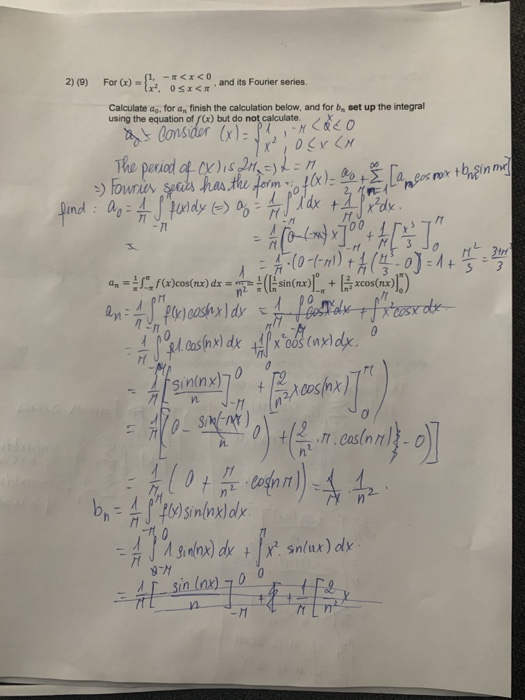 2) (9) For (x) = {1, −π < x < 0 x², 0 ≤ x < π , and its Fourier series.
Calculate a₀, for aₙ finish the calculation below, and for bₙ set up the integral
using the equation of f(x) but do not calculate.
Consider (x) = {1, -π < x ≤ 0 x², 0 ≤ x < π
The period of (x) is 2π => L = π
=) Fourier series has the form: f(x) = a₀/2 + ∑ₙ₌₁^∞ [aₙ cos nx + bₙ sin nx]
find: a₀ = 1/π ∫_{-π}^{π} f(x)dx (=) a₀ = 1/π ∫_{-π}^{0} 1dx + 1/π ∫_{0}^{π} x²dx.
= 1/π [0-(-π) x]⁰ + 1/π [x³/3]_0^π
= 1/π · (0-(-π)) + 1/π (π³/3 - 0) = 1 + π²/3 = 3+π²/3
aₙ = 1/π ∫_{-π}^{π} f(x)cos(nx) dx = 1/n² = 1/π ([1/n sin(nx)]_{-π}^{0} + [2/n² xcos(nx)]_0^π)
aₙ = 1/π ∫_{-π}^{π} f(x)cos(nx) dx = 1/π ∫_{-π}^{0} cosxdx + ∫_0^π x²cosx dx
= 1/π ∫_{-π}^{0} 1.cos(nx) dx + 1/π ∫_0^π x²cos(nx) dx.
= 1/π [sin(nx)/n]_{-π}^{0} + [2/n² x cos(nx)]_0^π )
= 1/π [(0 - sin(-nπ)/n 0) + (2/n² . π . cos(nπ) - 0)]
= 1/π (0 + π/n² · cos(nπ)) = 1/π · 1/n² .
bₙ = 1/π ∫_{-π}^{π} f(x) sin(nx) dx
= 1/π ∫_{-π}^{0} 1 sin(nx) dx + ∫_0^π x² sin(nx) dx.
= 1/π [- sin(nx)/n]_{-π}^{0} + 1/π [2/n² x